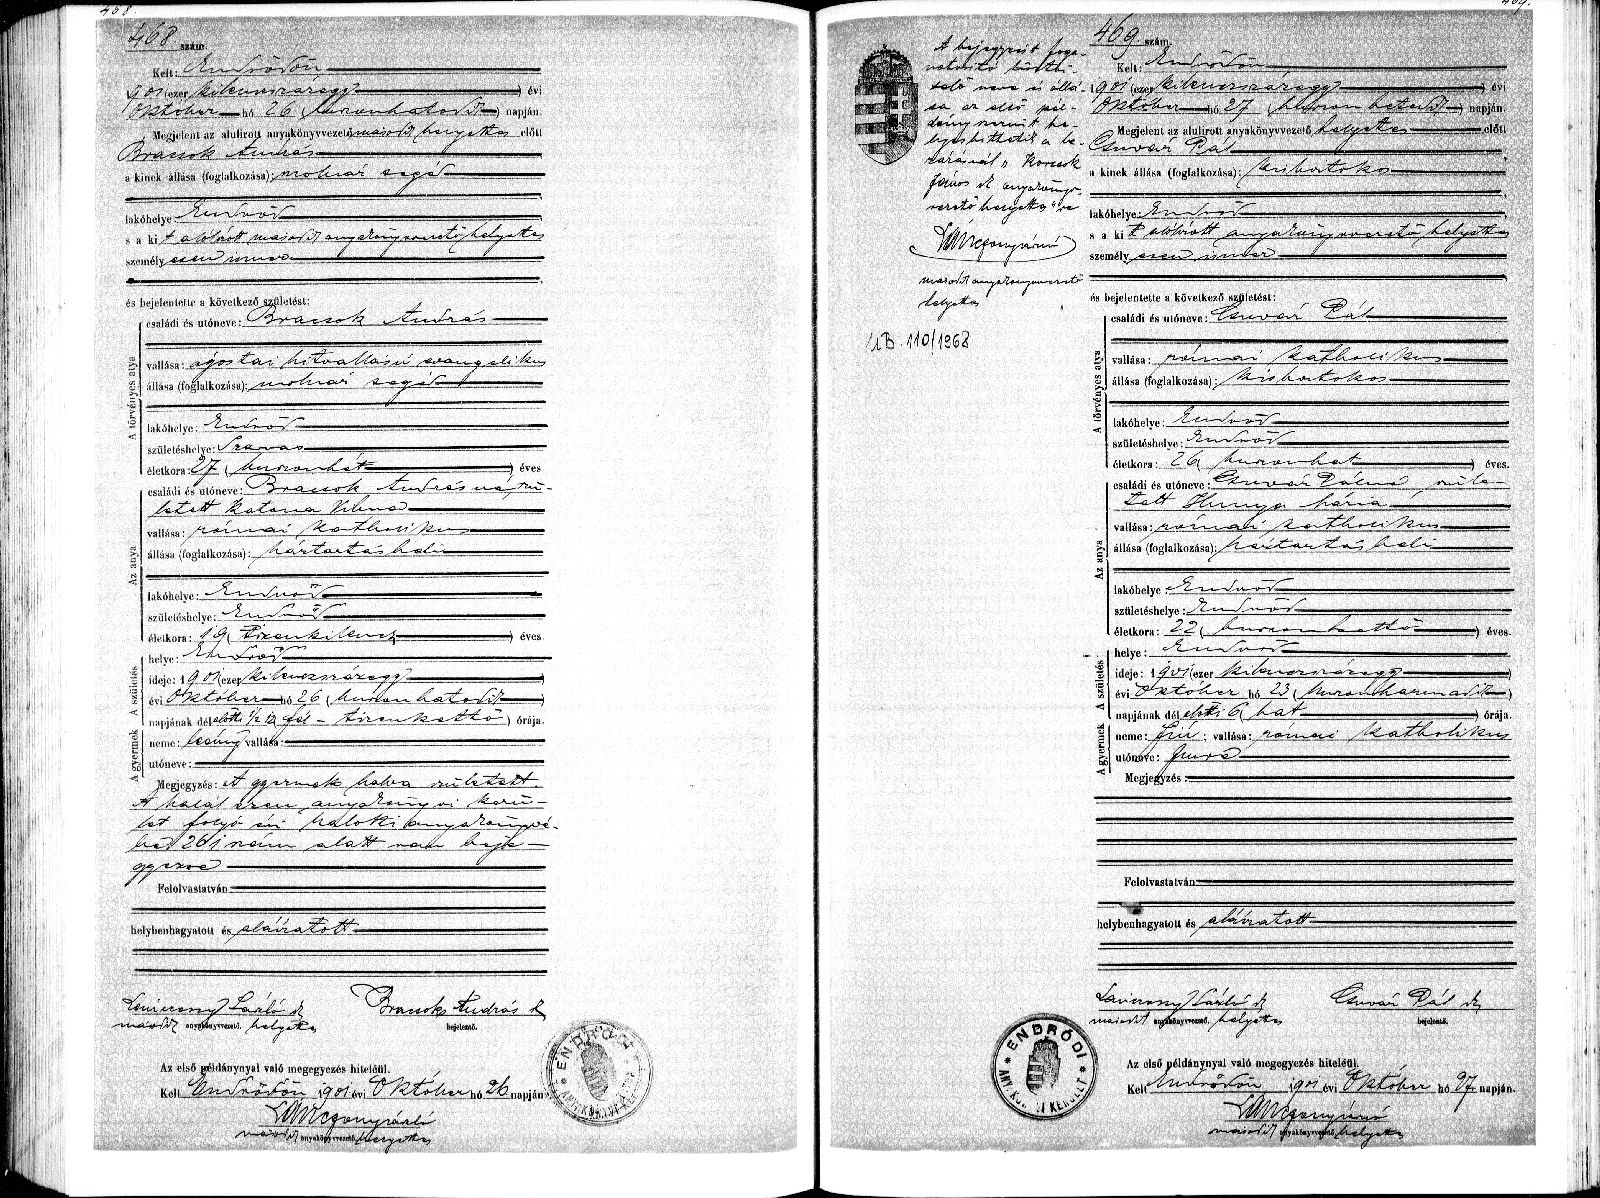 468.
468 szám.
Kelt: Endrődön
1901 (ezer kilenczszázegy) évi
Október hó 26 (huszonhatodik) napján.
Megjelent az alulirott anyakönyvvezető második helyettes előtt
Bracsok András
a kinek állása (foglalkozása): molnár segéd
lakóhelye: Endrőd
s a kit alólirott második anyakönyvvezető helyettes
személyesen ismer
és bejelentette a következő születést:
A törvényes atya
családi és utóneve: Bracsok András
vallása: ágostai hitvallású evangelikus
állása (foglalkozása): molnár segéd
lakóhelye: Endrőd
születéshelye: Szarvas
életkora: 27 (huszonhét) éves
Az anya
családi és utóneve: Bracsok Andrásné, szü-
letett Katona Vilma
vallása: római katholikus
állása (foglalkozása): háztartásbeli
lakóhelye: Endrőd
születéshelye: Endrőd
életkora: 19 (tizenkilencz) éves.
A születés
helye: Endrőd
ideje: 1901 (ezer kilenczszázegy)
évi Október hó 26 (huszonhatodik)
napjának dél előtti 1/2 12 (fél - tizenkettő) órája.
A gyermek
neme: leány vallása:
utóneve:
Megjegyzés: A gyermek halva született.
A halál ezen anyakönyvi kerü-
let folyó évi halotti anyakönyvé-
ben 261 szám alatt van beje-
gyezve
Felolvastatván
helybenhagyatott és aláíratott
László
Bracsok András
második anyakönyvvezető helyettes
bejelentő.
Az első példánynyal való megegyezés hiteléül.
Kelt Endrődön 1901 évi Október hó 26 napján
második anyakönyvvezető helyettes
ENDRŐDI
ANYAKÖNYVI KERÜLET
469.
A bejegyzést foga-
natosító tiszti-
selő neve és állá-
sa az első pél-
dány szerint he-
lyesbíttetik a be-
zárásnál „Korcsok
János s. k. anyakönyv-
vezető helyettes"-re
második anyakönyvvezető
helyettes
110/1968
469. szám.
Kelt: Endrődön
1901 (ezer kilenczszázegy) évi
Október hó 27 (huszonhetedik) napján.
Megjelent az alulirott anyakönyvvezető helyettes előtt
Csuvár Pál
a kinek állása (foglalkozása): kisbirtokos
lakóhelye: Endrőd
s a kit alólirott anyakönyvvezető helyettes
személyesen ismer
és bejelentette a következő születést:
A törvényes atya
családi és utóneve: Csuvár Pál
vallása: római katholikus
állása (foglalkozása): kisbirtokos
lakóhelye: Endrőd
születéshelye: Endrőd
életkora: 26 (huszonhat) éves.
Az anya
családi és utóneve: Csuvár Pálné, szüle-
tett Hunya Mária
vallása: római katholikus
állása (foglalkozása): háztartásbeli
lakóhelye: Endrőd
születéshelye: Endrőd
életkora: 22 (huszonkettő) éves.
A születés
helye: Endrőd
ideje: 1901 (ezer kilenczszázegy)
évi Október hó 23 (huszonharmadik)
napjának dél előtti 6 (hat) órája.
A gyermek
neme: fiú; vallása: római katholikus
utóneve: Imre
Megjegyzés:
Felolvastatván
helybenhagyatott és aláíratott
László
Csuvár Pál
második anyakönyvvezető helyettes
bejelentő.
Az első példánynyal való megegyezés hiteléül.
Kelt Endrődön 1901 évi Október hó 27 napján.
második anyakönyvvezető helyettes
ENDRŐDI
ANYAKÖNYVI KERÜLET